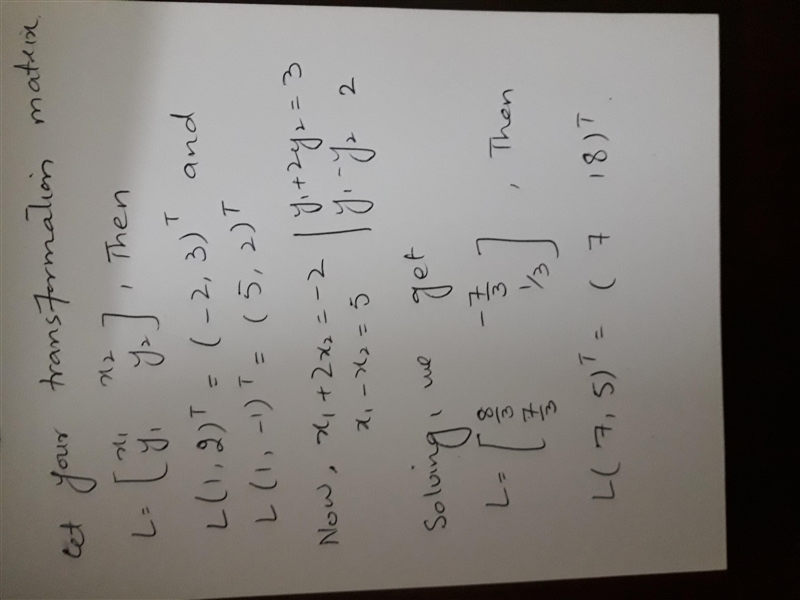 Let your transformation matrix
L = [ x₁ x₂
y₁ y₂ ] , Then
L(1, 2)ᵀ = (-2, 3)ᵀ and
L(1, -1)ᵀ = (5, 2)ᵀ
Now, x₁ + 2x₂ = -2 | y₁ + 2y₂ = 3
x₁ - x₂ = 5 | y₁ - y₂ 2
Solving, we get
L = [ 8/3 -7/3
7/3 1/3 ] , Then
L(7, 5)ᵀ = (7 18)ᵀ.